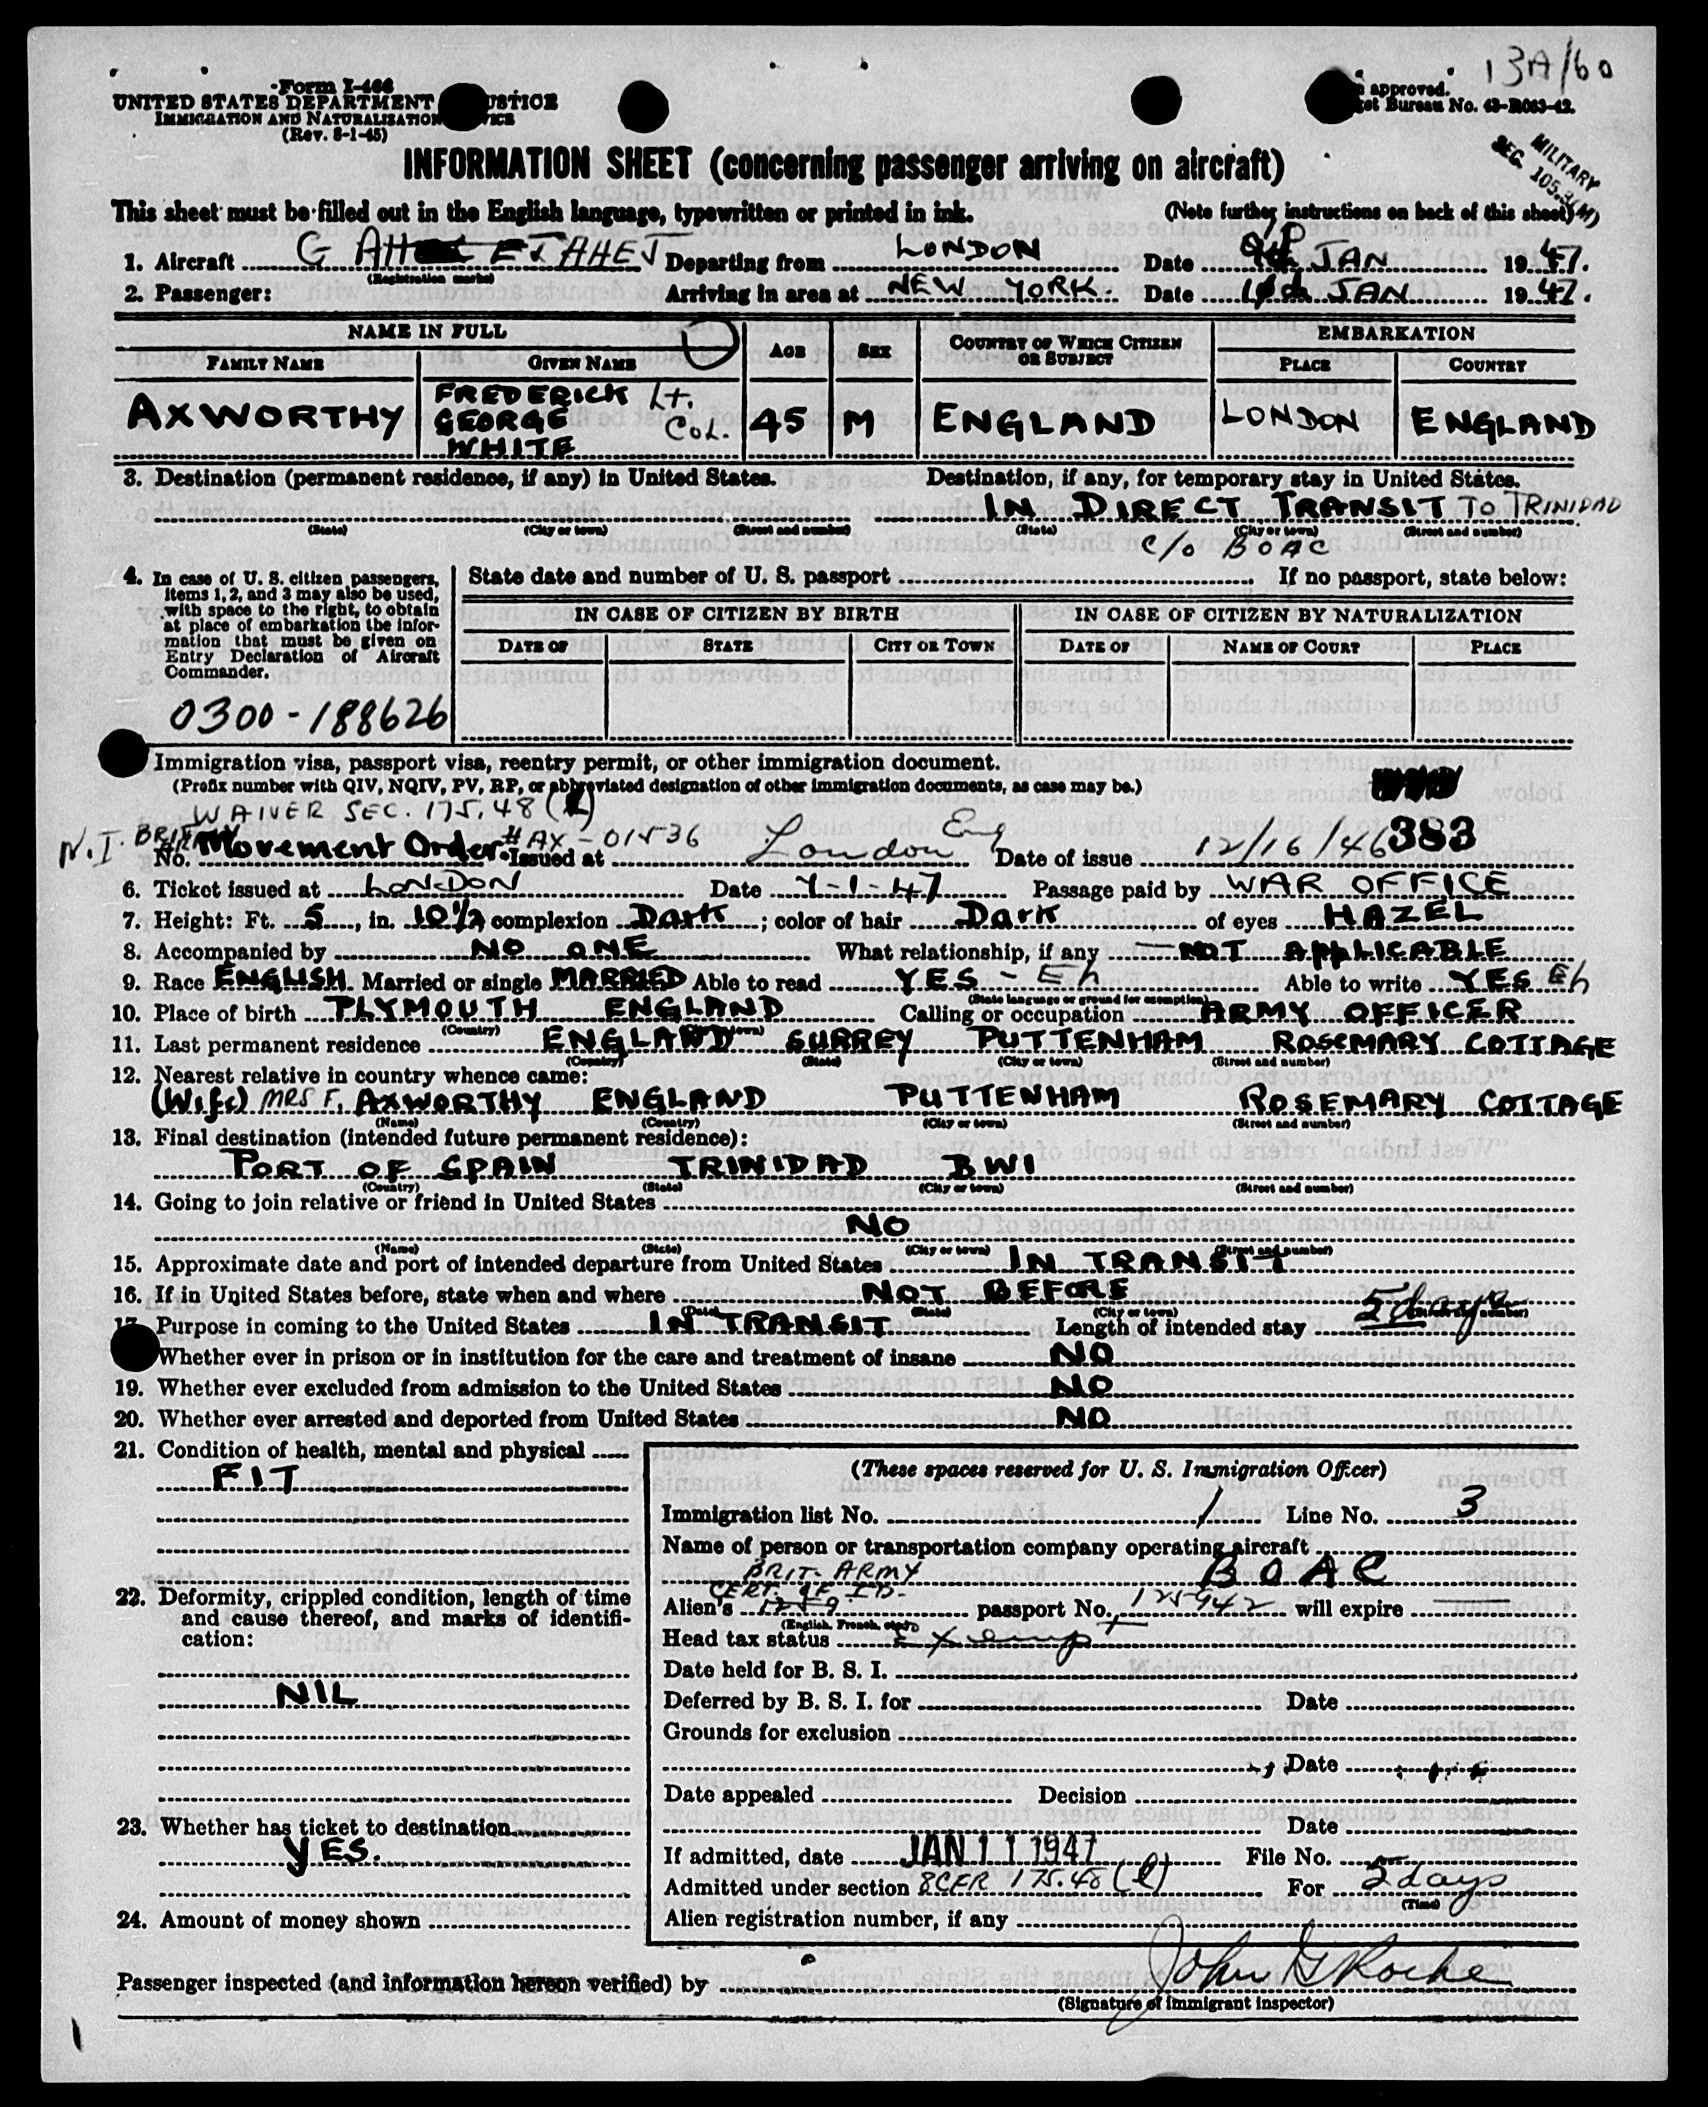 13A/60
Form I-466
UNITED STATES DEPARTMENT JUSTICE
IMMIGRATION AND NATURALIZATION
(Rev. 8-1-45)
approved.
Bureau No. 43-R083-42.
MILITARY
SEC. 105.3(M)
INFORMATION SHEET (concerning passenger arriving on aircraft)
This sheet must be filled out in the English language, typewritten or printed in ink. (Note further instructions on back of this sheet)
1. Aircraft G AHEJ Departing from LONDON Date JAN 1947.
(Registration marks)
2. Passenger: Arriving in area at NEW YORK. Date JAN 1947.
NAME IN FULL AGE SEX COUNTRY OF WHICH CITIZEN OR SUBJECT EMBARKATION
FAMILY NAME GIVEN NAME PLACE COUNTRY
AXWORTHY FREDERICK GEORGE WHITE Lt. COL. 45 M ENGLAND LONDON ENGLAND
3. Destination (permanent residence, if any) in United States. Destination, if any, for temporary stay in United States.
IN DIRECT TRANSIT TO TRINIDAD
(State) (City or town) (Street and number) (State) (City or town) (Street and number)
C/o BOAC
4. In case of U. S. citizen passengers, items 1, 2, and 3 may also be used, with space to the right, to obtain at place of embarkation the information that must be given on Entry Declaration of Aircraft Commander.
State date and number of U. S. passport If no passport, state below:
IN CASE OF CITIZEN BY BIRTH IN CASE OF CITIZEN BY NATURALIZATION
DATE OF STATE CITY OR TOWN DATE OF NAME OF COURT PLACE
0300-188626
Immigration visa, passport visa, reentry permit, or other immigration document.
(Prefix number with QIV, NQIV, PV, RP, or abbreviated designation of other immigration documents, as case may be.)
WAIVER SEC. 175.48 (l)
N.I. BRIT ARMY
No. Movement Order #AX-01536 Issued at London Eng Date of issue 12/16/46 383
6. Ticket issued at LONDON Date 7-1-47 Passage paid by WAR OFFICE
7. Height: Ft. 5, in. 10½ complexion Dark; color of hair Dark of eyes HAZEL
8. Accompanied by NO ONE What relationship, if any - NOT APPLICABLE
9. Race ENGLISH Married or single MARRIED Able to read YES - Eh Able to write YES Eh
(State language or ground for exemption)
10. Place of birth PLYMOUTH ENGLAND Calling or occupation ARMY OFFICER
(Country) (City or town)
11. Last permanent residence ENGLAND SURREY PUTTENHAM ROSEMARY COTTAGE
(Country) (State) (City or town) (Street and number)
12. Nearest relative in country whence came:
(Wife) MRS F. AXWORTHY ENGLAND PUTTENHAM ROSEMARY COTTAGE
(Name) (Country) (City or town) (Street and number)
13. Final destination (intended future permanent residence):
PORT OF SPAIN TRINIDAD BWI
(Country) (State) (City or town) (Street and number)
14. Going to join relative or friend in United States
NO
(Name) (State) (City or town) (Street and number)
15. Approximate date and port of intended departure from United States IN TRANSIT
16. If in United States before, state when and where NOT BEFORE
(Date) (State) (City or town) (Street and number)
17. Purpose in coming to the United States IN TRANSIT Length of intended stay 5 days
Whether ever in prison or in institution for the care and treatment of insane NO
19. Whether ever excluded from admission to the United States NO
20. Whether ever arrested and deported from United States NO
21. Condition of health, mental and physical
FIT
22. Deformity, crippled condition, length of time and cause thereof, and marks of identification:
NIL
23. Whether has ticket to destination
YES.
24. Amount of money shown
(These spaces reserved for U. S. Immigration Officer)
Immigration list No. 1 Line No. 3
Name of person or transportation company operating aircraft
BOAC
BRIT. ARMY
CERT. OF ID.
Alien's passport No. 125942 will expire
(English, French, etc.)
Head tax status Exempt
Date held for B. S. I.
Deferred by B. S. I. for Date
Grounds for exclusion
Date
Date appealed Decision
Date
If admitted, date JAN 11 1947 File No.
Admitted under section 8CFR 175.48 (l) For 5 days
(Time)
Alien registration number, if any
Passenger inspected (and information hereon verified) by John G Roche
(Signature of immigrant inspector)